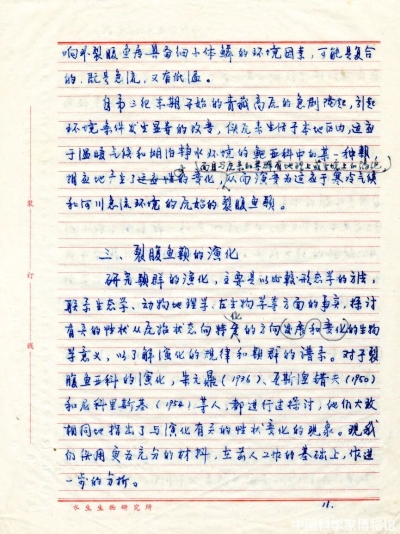 响于裂腹鱼房具有细小体鳞的环境因素，可能是复合
的，既是急流，又有低温。
自第三纪末期开始的青藏高原的急剧隆起，引起
环境条件发生显著的改变，使原来生活于本地区内，适应
于温暖气候和湖泊静水环境的鲃亚科中的某一种类，
相应地产生了适应性的变化，从而演变为适应于寒冷气候
和河川急流环境的原始的裂腹鱼类。
三、裂腹鱼类的演化
研究类群的演化，主要是以比较形态学的方法，
联系生态学、动物地理学、古生物学等方面的事实，探讨
有关的性状从原始状态向特化的方向发展和变化的生物
学意义，以了解演化的规律和类群的谱系。对于裂
腹鱼亚科的演化，朱元鼎（1936）、
和尼科里斯基（1954）等人，都进行过探讨，他们大致
相同地指出了与演化有关的性状变化的现象。现我
们使用更为充分的材料，在前人工作的基础上，作进
一步的分析。
装
订
线
水生生物研究所
11.